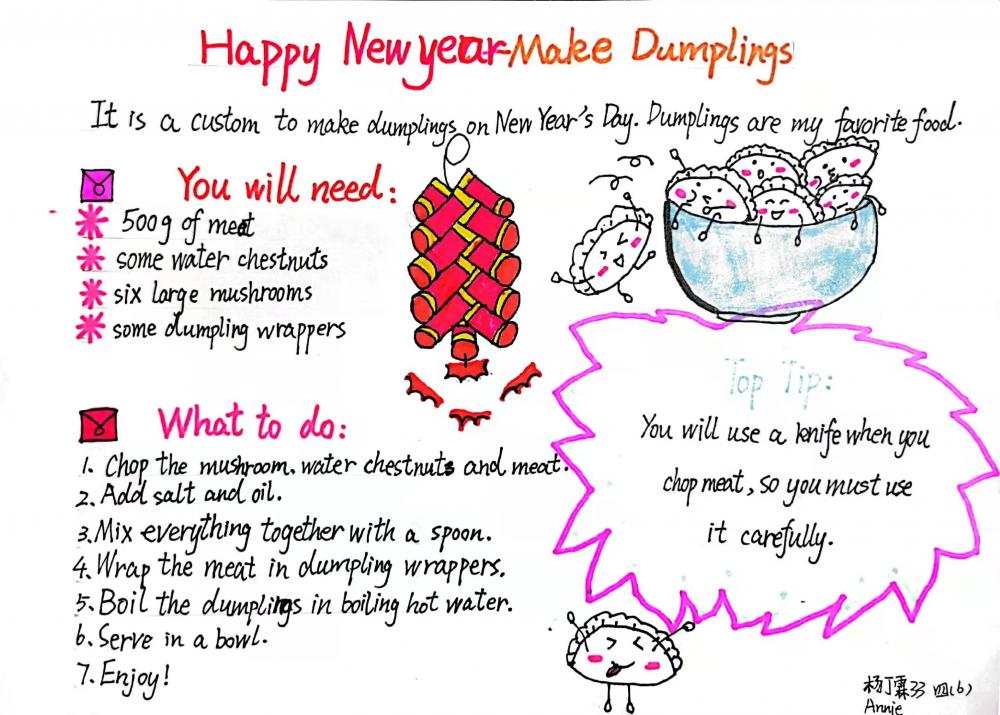 Happy New year-Make Dumplings
It is a custom to make dumplings on New Year's Day. Dumplings are my favorite food.
You will need:
500g of meat
some water chestnuts
six large mushrooms
some dumpling wrappers
What to do:
1. Chop the mushroom. water chestnuts and meat.
2. Add salt and oil.
3. Mix everything together with a spoon.
4. Wrap the meat in dumpling wrappers.
5. Boil the dumplings in boiling hot water.
6. Serve in a bowl.
7. Enjoy!
Top Tip:
You will use a knife when you
chop meat, so you must use
it carefully.
杨丁霖33 四(6)
Annie